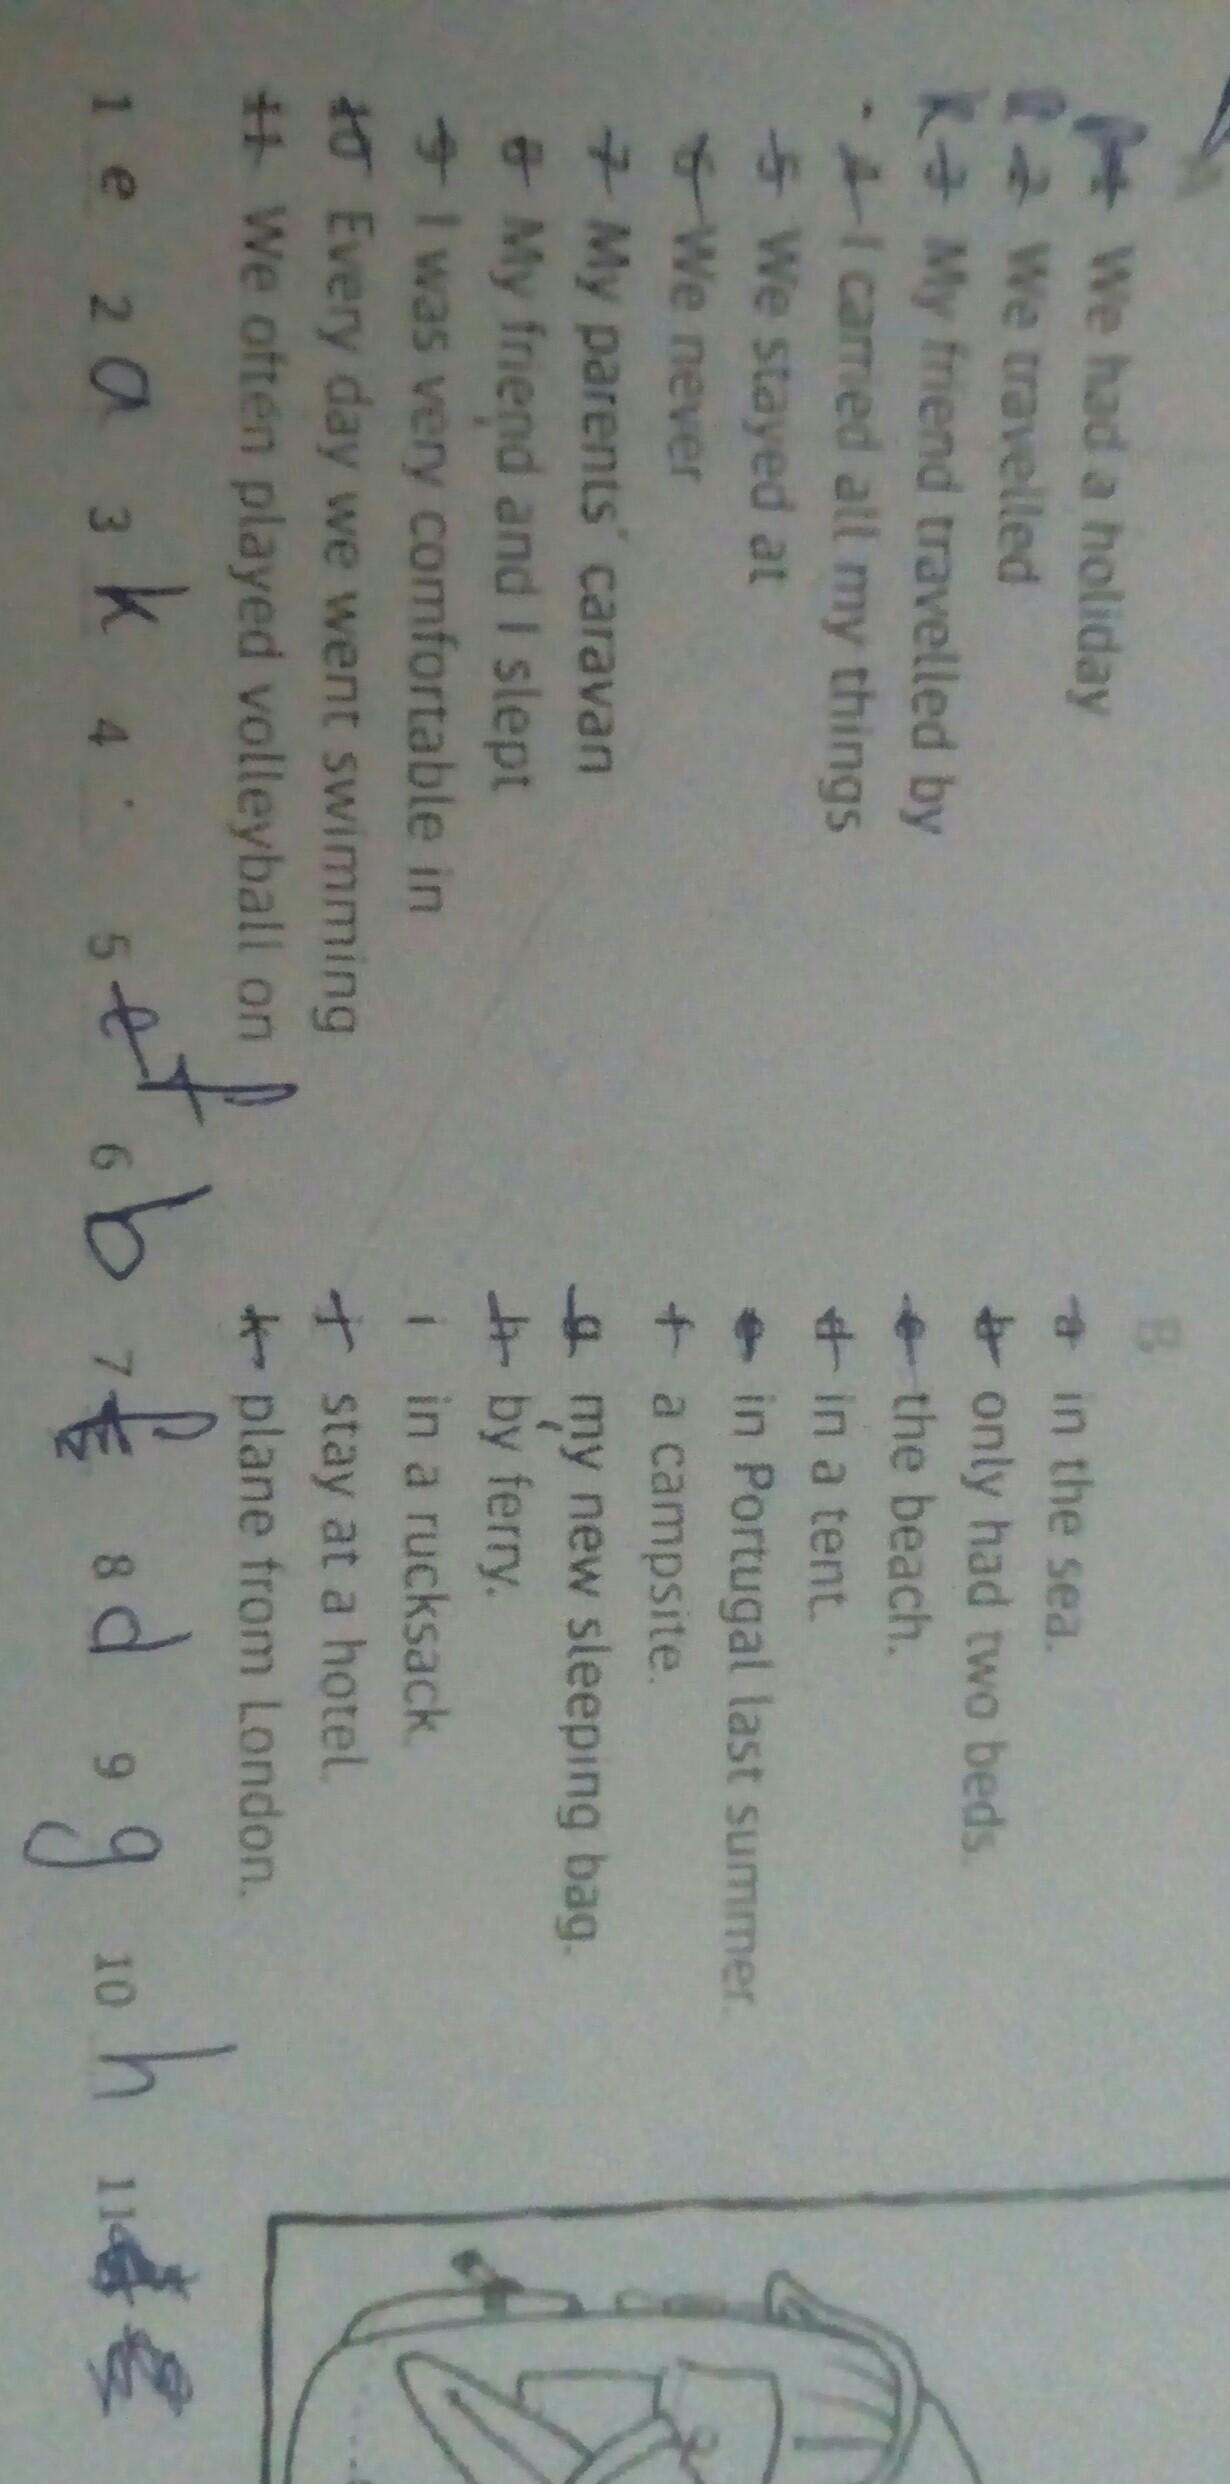 B
1 We had a holiday
2 We travelled
k 3 My friend travelled by
4 I carried all my things
5 We stayed at
6 We never
7 My parents' caravan
8 My friend and I slept
9 I was very comfortable in
10 Every day we went swimming
11 We often played volleyball on
a in the sea.
b only had two beds.
c the beach.
d in a tent.
e in Portugal last summer.
f a campsite.
g my new sleeping bag.
h by ferry.
i in a rucksack.
j stay at a hotel.
k plane from London.
1 e 2 a 3 k 4 5 e f 6 b 7 8 d 9 g 10 h 11